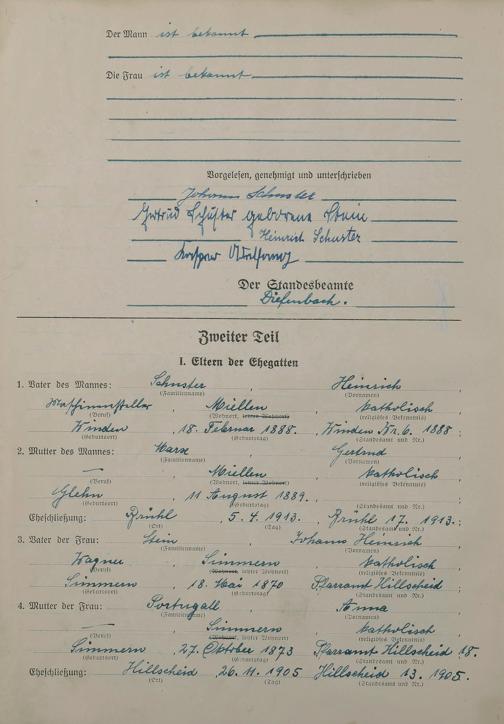 Der Mann ist bekannt
Die Frau ist bekannt
Vorgelesen, genehmigt und unterschrieben
Johann Schuster
Gertrud Schuster geborene Stein
Heinrich Schuster
Kaspar
Der Standesbeamte
Diefenbach.
Zweiter Teil
I. Eltern der Ehegatten
1. Vater des Mannes: Schuster, Heinrich,
(Familienname) (Vornamen)
Miellen katholisch
(Beruf) (Wohnort, letzter Wohnort) (religiöses Bekenntnis)
Winden, 18. Februar 1888. Winden Nr. 6. 1888;
(Geburtsort) (Geburtstag) (Standesamt und Nr.)
2. Mutter des Mannes: Marx Gertrud,
(Familienname) (Vornamen)
— Miellen katholisch
(Beruf) (Wohnort, letzter Wohnort) (religiöses Bekenntnis)
Glehn, 11 August 1889.
(Geburtsort) (Geburtstag) (Standesamt und Nr.)
Eheschließung: Brühl, 5. 4. 1913. Brühl 17. 1913.;
(Ort) (Tag) (Standesamt und Nr.)
3. Vater der Frau: Stein Johann Heinrich,
(Familienname) (Vornamen)
Wagner Simmern katholisch
(Beruf) (Wohnort, letzter Wohnort) (religiöses Bekenntnis)
Simmern, 18. Mai 1870 Pfarramt Hillscheid;
(Geburtsort) (Geburtstag) (Standesamt und Nr.)
4. Mutter der Frau: Portugall Anna,
(Familienname) (Vornamen)
— Simmern katholisch
(Beruf) (Wohnort, letzter Wohnort) (religiöses Bekenntnis)
Simmern, 27. Oktober 1873 Pfarramt Hillscheid 18.
(Geburtsort) (Geburtstag) (Standesamt und Nr.)
Eheschließung: Hillscheid, 26. 11. 1905 Hillscheid 13. 1905.
(Ort) (Tag) (Standesamt und Nr.)